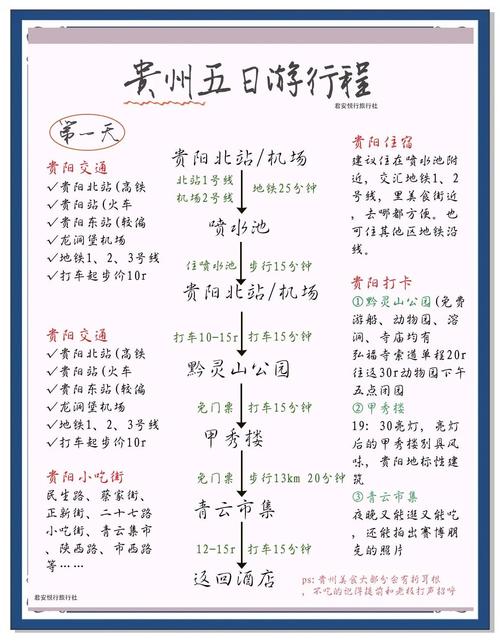 贵州五日游行程
君安悦行旅行社
第一天
贵阳交通
✓贵阳北站(高铁
✓贵阳站(火车
✓贵阳东站(较偏
✓龙洞堡机场
✓地铁1、2、3号线
✓打车起步价10r
贵阳交通
✓贵阳北站(高铁
✓贵阳站(火车
✓贵阳东站(较偏
✓龙洞堡机场
✓地铁1、2、3号线
✓打车起步价10r
贵阳小吃街
民生路、蔡家街、
正新街、二十七路
小吃街、青云集市
、陕西路、市西路
等……
贵阳北站/机场
北站1号线
机场2号线
地铁25分钟
喷水池
住喷水池 步行15分钟
贵阳北站/机场
打车10-15r 打车15分钟
黔灵山公园
免门票 打车15分钟
甲秀楼
免门票 步行13km 20分钟
青云市集
12-15r 打车15分钟
返回酒店
贵阳住宿
建议住在喷水池附
近，交汇地铁1、2
号线，里美食街近
，去哪都方便。也
可住其他区地铁沿
线。
贵阳打卡
①黔灵山公园(免费
游船、动物园、溶
洞、寺庙均有
弘福寺索道单程20r
往返30r动物园下午
五点闭园
②甲秀楼
19：30亮灯，亮灯
后的甲秀楼别具风
味，贵阳地标性建
筑
③青云市集
夜晚又能逛又能吃
，还能拍出赛博朋
克的照片
ps：贵州美食大部分会有折耳根
，不吃的记得提前和老板打声招呼
君安悦行旅行社